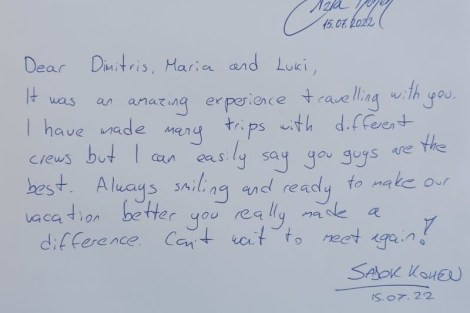 15.07.2022
Dear Dimitris, Maria and Luki,
It was an amazing experience travelling with you.
I have made many trips with different
crews but I can easily say you guys are the
best. Always smiling and ready to make our
vacation better you really made a
difference. Can't wait to meet again!
15.07.22